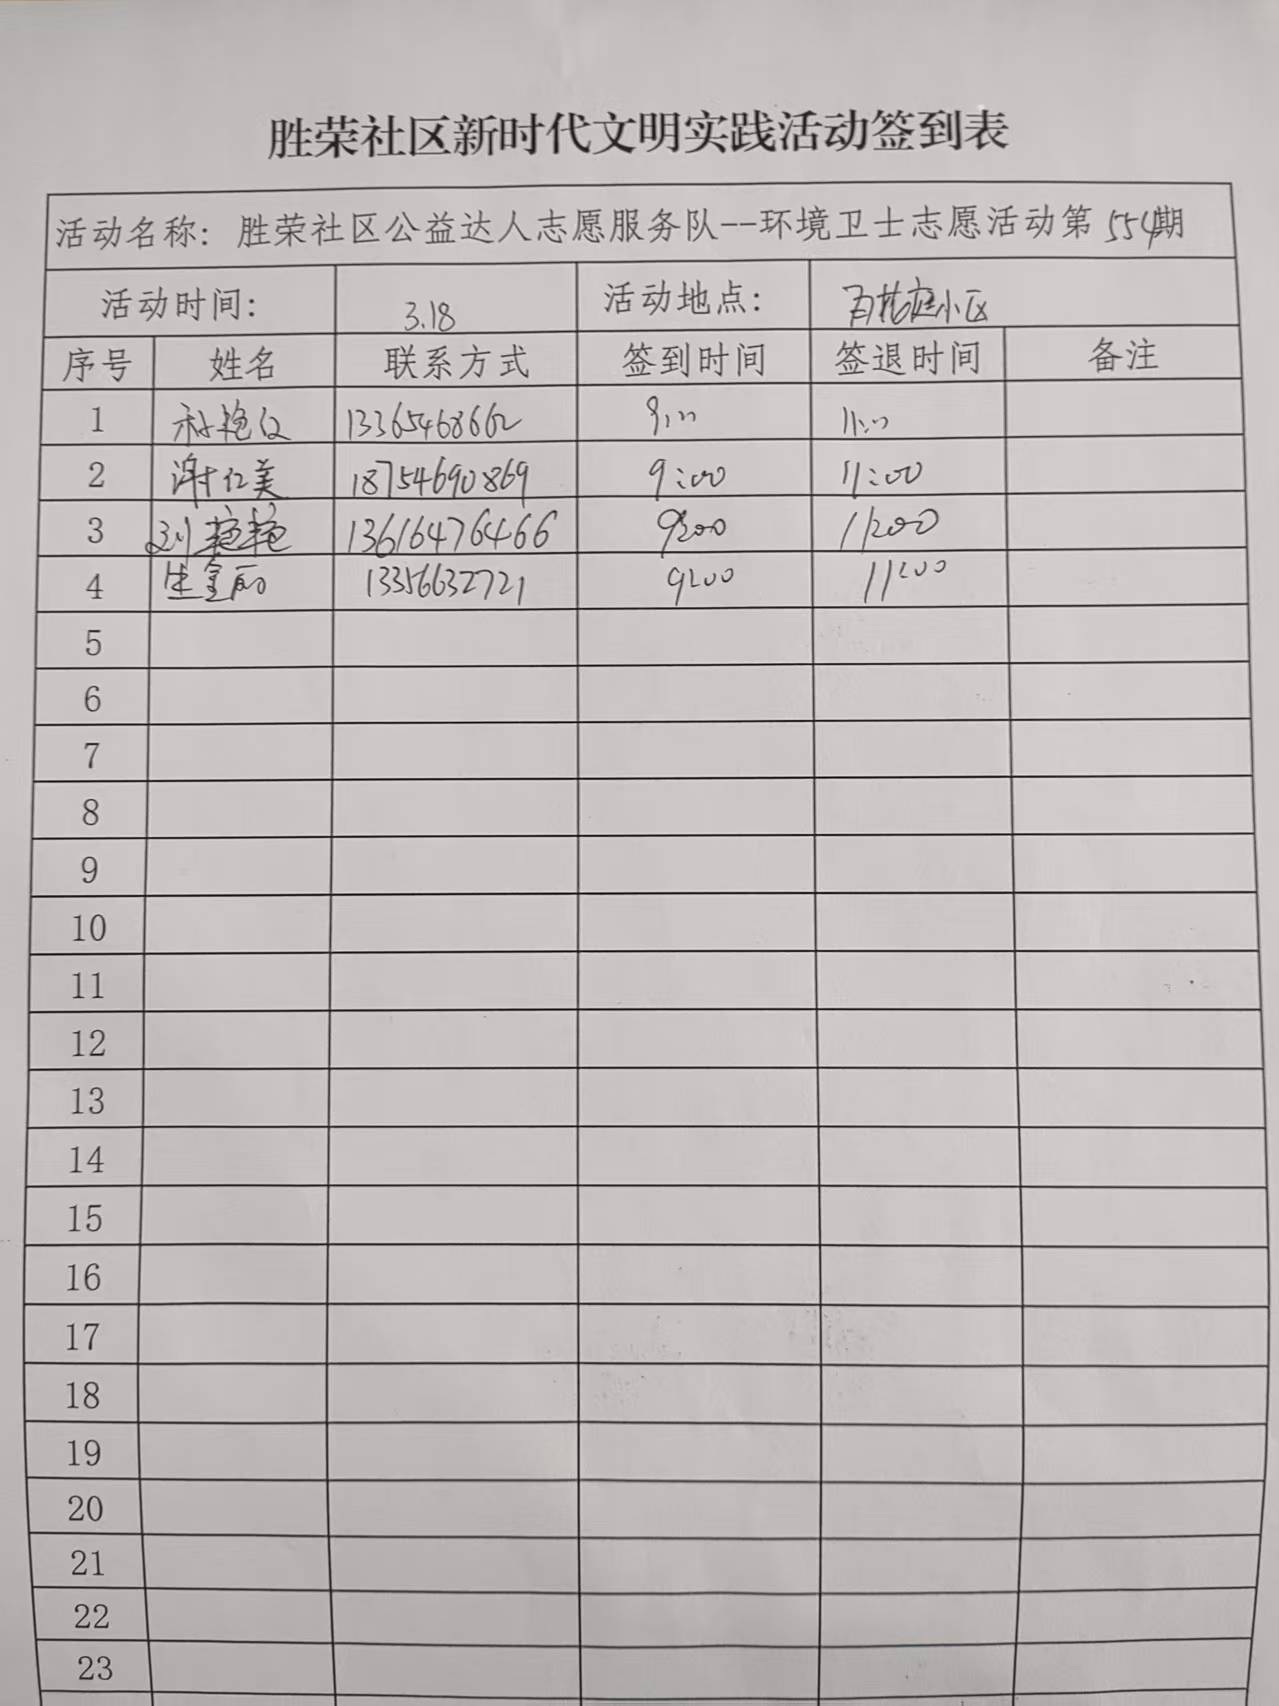 胜荣社区新时代文明实践活动签到表
活动名称：胜荣社区公益达人志愿服务队--环境卫士志愿活动第554期
活动时间： 3.18 活动地点： 百花庭小区
序号 姓名 联系方式 签到时间 签退时间 备注
1 13365468662 9:00 11:00
2 谢仁美 18754690869 9:00 11:00
3 刘艳艳 13616476466 9:00 11:00
4 生金丽 13356632721 9:00 11:00
5
6
7
8
9
10
11
12
13
14
15
16
17
18
19
20
21
22
23